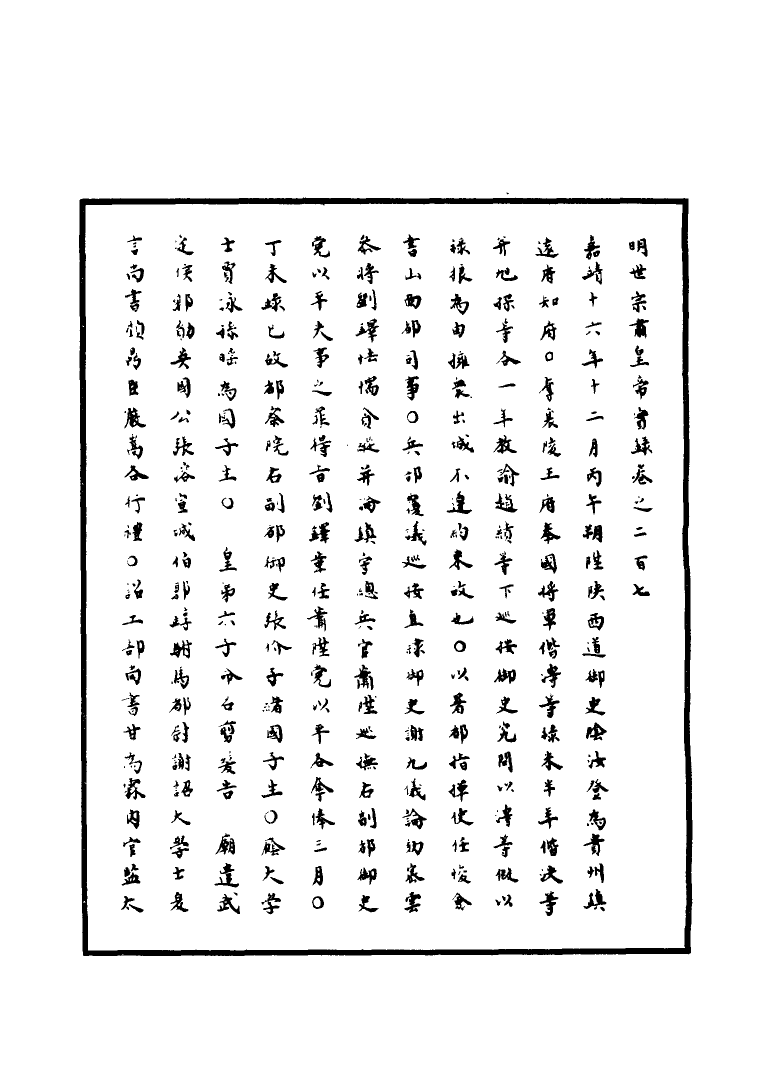 明世宗肅皇帝實錄卷之二百七
嘉靖十六年十二月丙午朔陞陝西道御史陰汝登為貴州鎮
遠府知府○奪襄陵王府奉國將軍偕澭等祿米半年偕泱等
并旭㮂等各一年教諭趙績等下巡按御史究問以等倣以
祿粮為由擁眾出城不遵約束故也○以署都指揮使任愎僉
書山西都司事○兵部覆議巡按直隸御史謝九儀論劾密雲
叅將劉鐸怯懦貪縱并論鎮守總兵官蕭陞巡撫右副都御史
党以平失事之罪得旨劉鐸革任蕭陞党以平各奪俸三月○
丁未錄已故都察院右副都御史張介子緒國子生○廕大學
士賈泳孫暚為國子生○　皇第六子命名剪髮告　廟遣武
定侯郭勛英國公張溶宣城伯郭㻞駙馬都尉謝詔大學士夏
言尚書顧鼎臣嚴嵩各行禮○詔工部尚書甘為霖內官監太